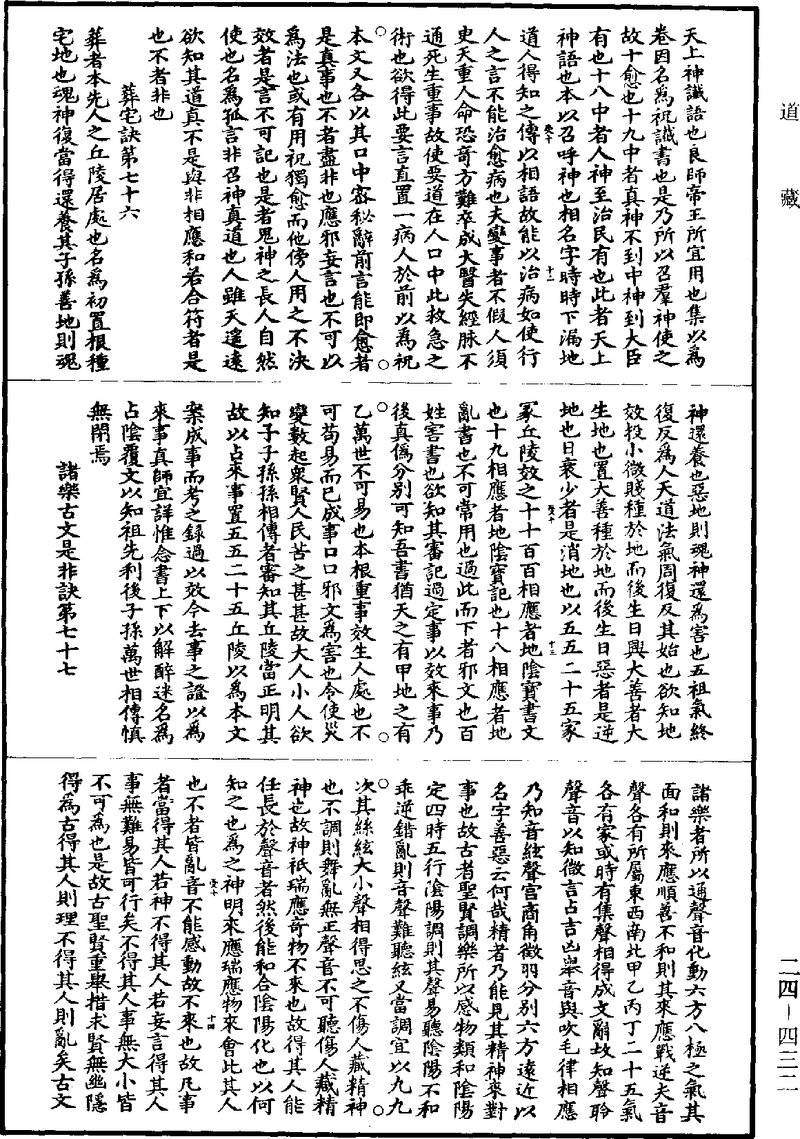 道藏
天上神讖語也良師帝王所宜用也集以為
卷因名為祝讖書也是乃所以召羣神使之
故十愈也十九中者真神不到中神到大臣
有也十八中者人神至治民有也此者天上
神語也本以召呼神也相名字時時下漏地
道人得知之傳以相語故能以治病如使行
人之言不能治愈病也夫變事者不假人須
臾天重人命恐奇方難卒成大醫失經脉不
通死生重事故使要道在人口中此救急之
術也欲得此要言直置一病人於前以為祝
本文又各以其口中密秘辭前言能即愈者
是真事也不者盡非也應邪妄言也不可以
為法也或有用祝獨愈而他傍人用之不決
效者是言不可記也是者鬼神之長人自然
使也名為孤言非召神真道也人雖天遥遠
欲知其道真不是與非相應和若合符者是
也不者非也
葬宅訣第七十六
葬者本先人之丘陵居處也名為初置根種
宅地也魂神復當得還養其子孫善地則魂
神還養也惡地則魂神還為害也五祖氣終
復反為人天道法氣周復反其始也欲知地
效投小微賤種於地而後生日興大善者大
生地也置大善種於地而後生日惡者是逆
地也日衰少者是消地也以五五二十五家
冢丘陵效之十十百百相應者地陰寶書文
也十九相應者地陰寶記也十八相應者地
亂書也不可常用也過此而下者邪文也百
姓害書也欲知其審記過定事以效來事乃
後真偽分別可知吾書猶天之有甲地之有
乙萬世不可易也本根重事效生人處也不
可苟易而已成事口口邪文為害也令使災
變數起衆賢人民苦之甚甚故大人小人欲
知子子孫孫相傳者審知其丘陵當正明其
故以占來事置五五二十五丘陵以為本文
案成事而考之錄過以效今去事之證以為
來事真師宜詳惟念書上下以解醉迷名為
占陰覆文以知祖先利後子孫萬世相傳慎
無閉焉
諸樂古文是非訣第七十七
諸樂者所以通聲音化動六方八極之氣其
面和則來應順善不和則其來應戰逆夫音
聲各有所屬東西南北甲乙丙丁二十五氣
各有家或時有集聲相得成文辭故知聲聆
聲音以知微言占吉凶舉音與吹毛律相應
乃知音絃聲宮商角徵羽分別六方遠近以
名字善惡云何哉精者乃能見其精神來對
事也故古者聖賢調樂所以感物類和陰陽
定四時五行陰陽調則其聲易聽陰陽不和
乖逆錯亂則音聲難聽絃又當調宜以九九
次其絲絃大小聲相得思之不傷人藏精神
也不調則舞亂無正聲音不可聽傷人藏精
神也故神祇瑞應奇物不來也故得其人能
任長於聲音者然後能和合陰陽化也以何
知之也為之神明來應瑞應物來會此其人
也不者皆亂音不能感動故不來也故凡事
者當得其人若神不得其人若妄言得其人
事無難易皆可行矣不得其人事無大小皆
不可為也是故古聖賢重舉措求賢無幽隱
得為古得其人則理不得其人則亂矣古文
二四-四三二